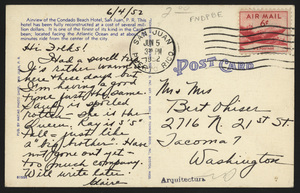 6/4/52
A view of the Condado Beach Hotel, San Juan, P. R. This
hotel has been fully reconstructed at a cost of several mil-
lion dollars. It is one of the finest of its kind in the Carib-
bean, located facing the Atlantic Ocean and at ten
minutes ride from the center of the city.
Hi Folks!
Had a swell trip.
It's rather warm
here these days but
I'm having a good
time just the same.
Sandy is spoiled
rotten. She is the
Queen. Ray is 5'1"
Pete - just like
a "big brother". Have
not gone out with
Company.
Will write later.
Claire
SAN JUAN
JUN 5
PM
1952
AIR MAIL
6¢
POST CARD
Mrs Mrs
Bert Ohiser
2716 N. 21st St
Tacoma 7
Washington
Arquitectura